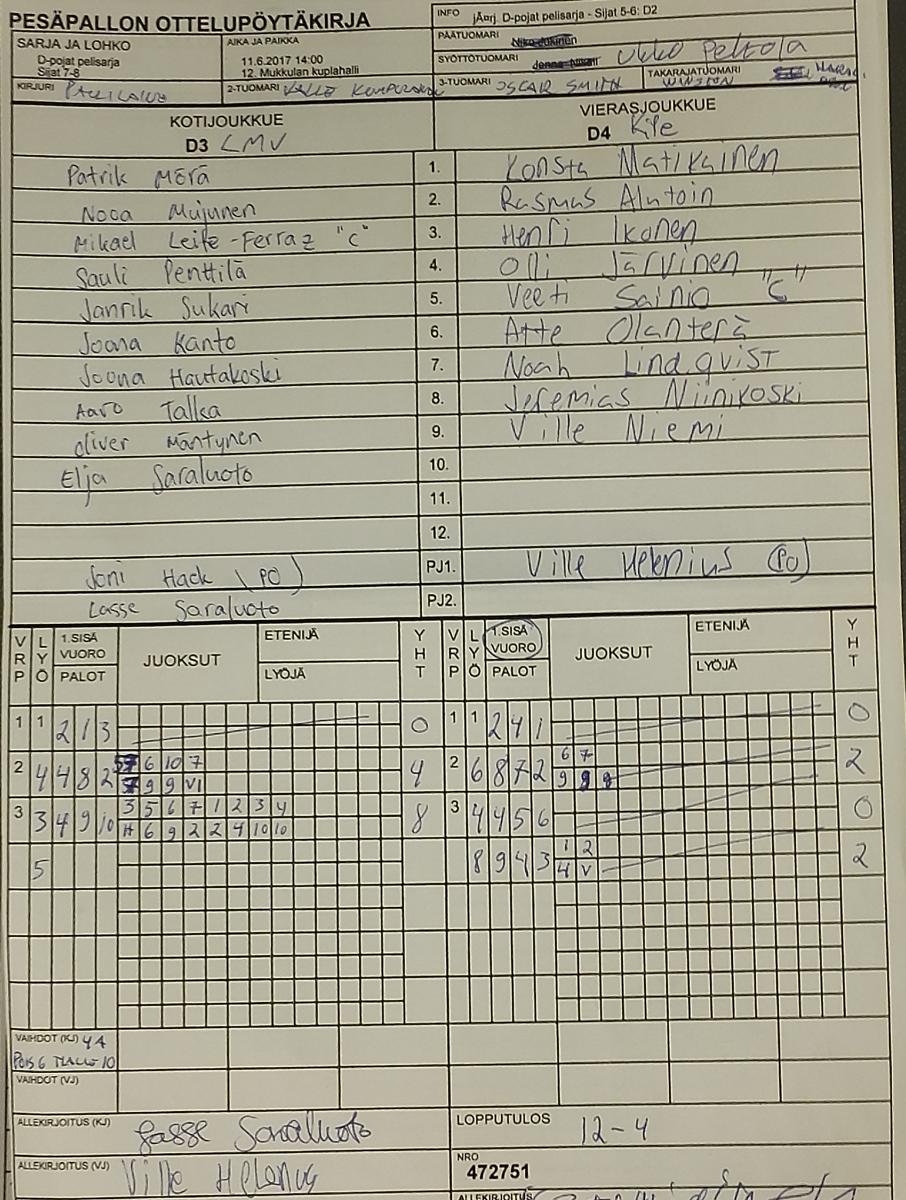 PESÄPALLON OTTELUPÖYTÄKIRJA
INFO jÃ¤rj. D-pojat pelisarja - Sijat 5-6: D2
SARJA JA LOHKO
D-pojat pelisarja
Sijat 7-8
AIKA JA PAIKKA
11.6.2017 14:00
12. Mukkulan kuplahalli
PÄÄTUOMARI
SYÖTTÖTUOMARI Ukko Peltola
KIRJURI
2-TUOMARI
3-TUOMARI OSCAR SMITH
TAKARAJATUOMARI WINSTON
KOTIJOUKKUE
D3 LMV
VIERASJOUKKUE
D4 Kite
Patrik Mörä 1. Konsta Matikainen
Nooa Mujunen 2. Rasmus
Mikael Leite-Ferraz "C" 3. Henri Ikonen
Sauli Penttilä 4. Olli Järvinen
Janrik Sukari 5. Veeti Sainio "C"
Joona Kanto 6. Atte Olanterä
Joona Hautakoski 7. Noah Lindqvist
Aaro Talka 8. Jeremias Niinikoski
Oliver Mäntynen 9. Ville Niemi
Elja Saraluoto 10.
11.
12.
Joni Hack (PO) PJ1. Ville Helenius (PO)
Lasse Saraluoto PJ2.
VRP LYÖ 1.SISÄ VUORO PALOT JUOKSUT ETENIJÄ LYÖJÄ YHT VRP LYÖ 1.SISÄ VUORO PALOT JUOKSUT ETENIJÄ LYÖJÄ YHT
1 1 2 1 3 0 1 1 2 4 1 0
6 10 7 6 7
2 4 4 8 2 9 9 VI 4 2 6 8 7 2 9 2
3 5 6 7 1 2 3 4
3 3 4 9 10 6 9 2 2 4 10 10 8 3 4 4 5 6 0
1 2
5 8 9 4 3 4 V 2
VAIHDOT (KJ) 4A
POIS 6 TILALLE 10
VAIHDOT (VJ)
ALLEKIRJOITUS (KJ) Lasse Saraluoto
LOPPUTULOS 12-4
ALLEKIRJOITUS (VJ) Ville Helenius
NRO
472751
ALLEKIRJOITUS